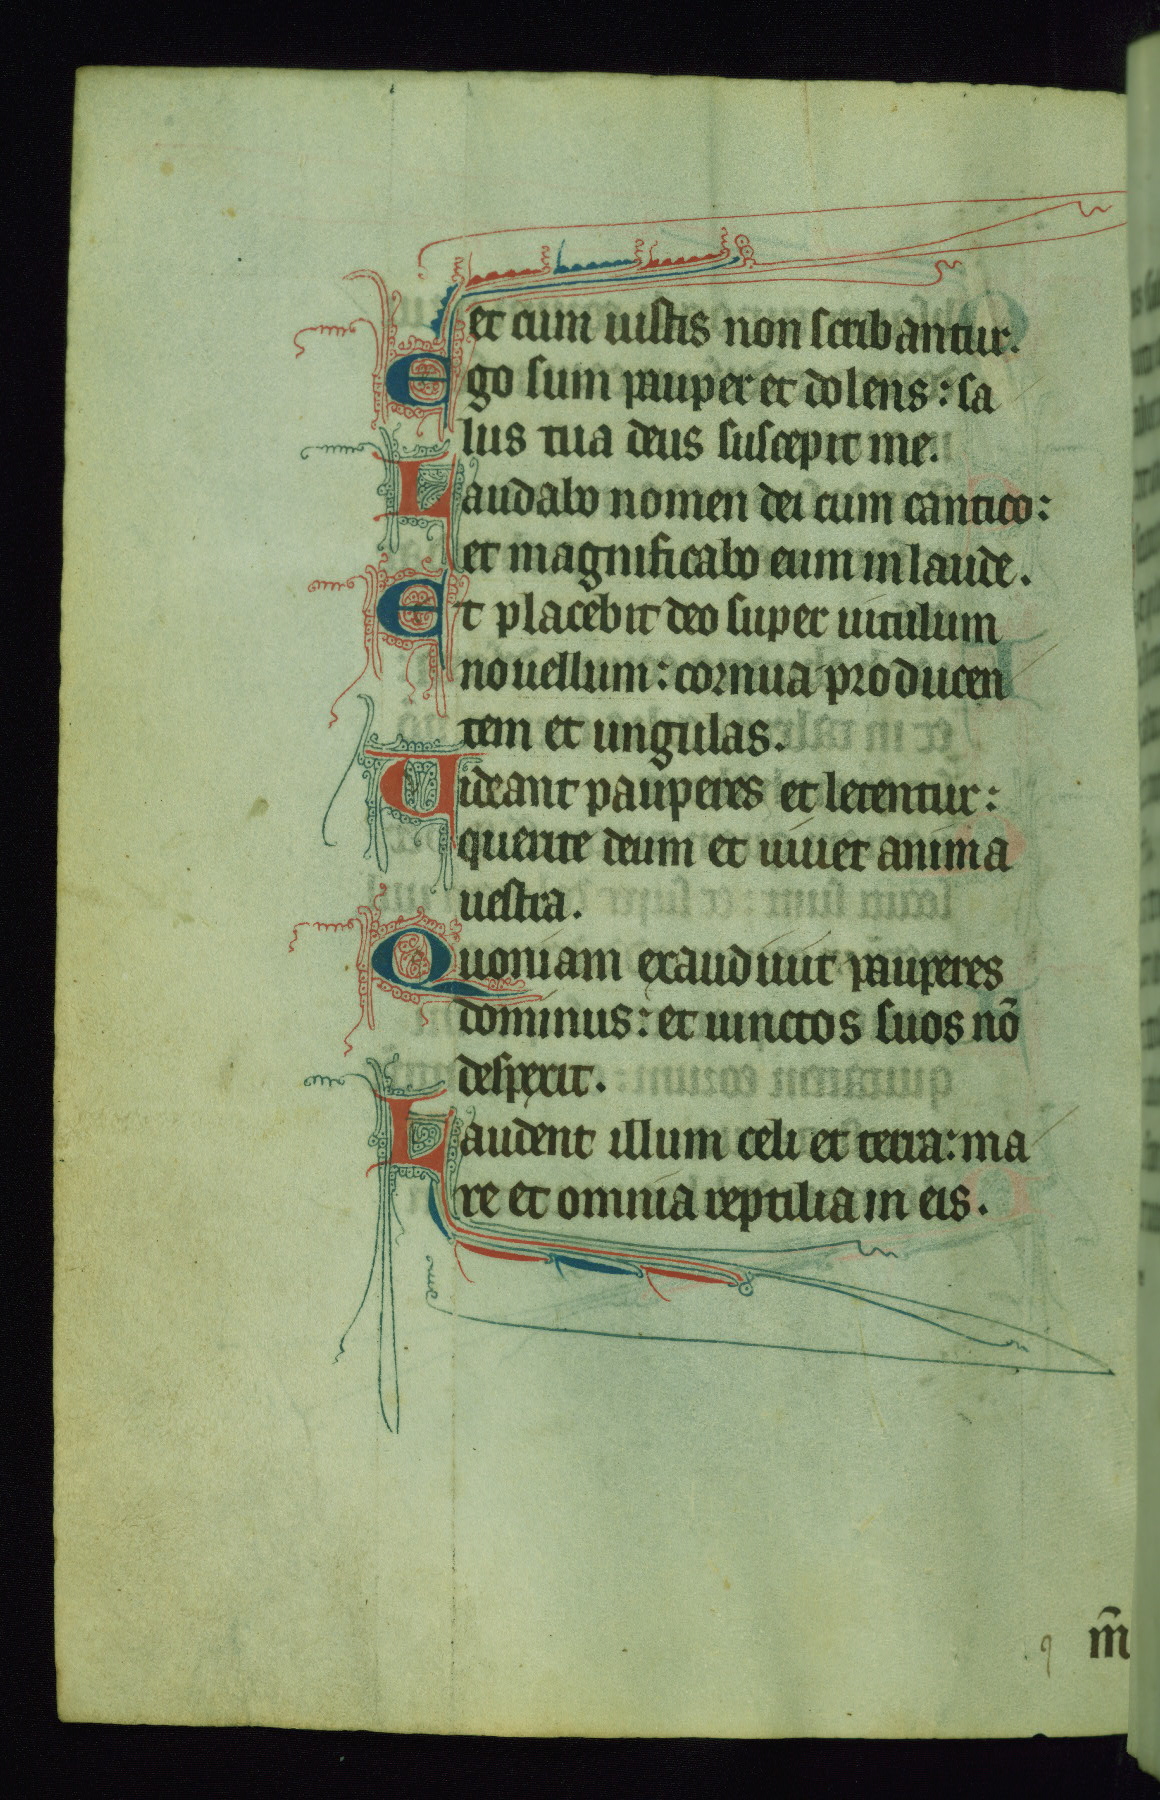 et cum iustis non scribantur.
Ego sum pauper et dolens : sa
lus tua deus suscepit me.
Laudabo nomen dei cum cantico :
et magnificabo eum in laude.
Et placebit deo super uitulum
nouellum : cornua producen
tem et ungulas.
Uideant pauperes et letentur :
querite deum et uiuet anima
uestra.
Quoniam exaudiuit pauperes
dominus : et uinctos suos nō
despexit.
Laudent illum celi et terra : ma
re et omnia reptilia in eis.